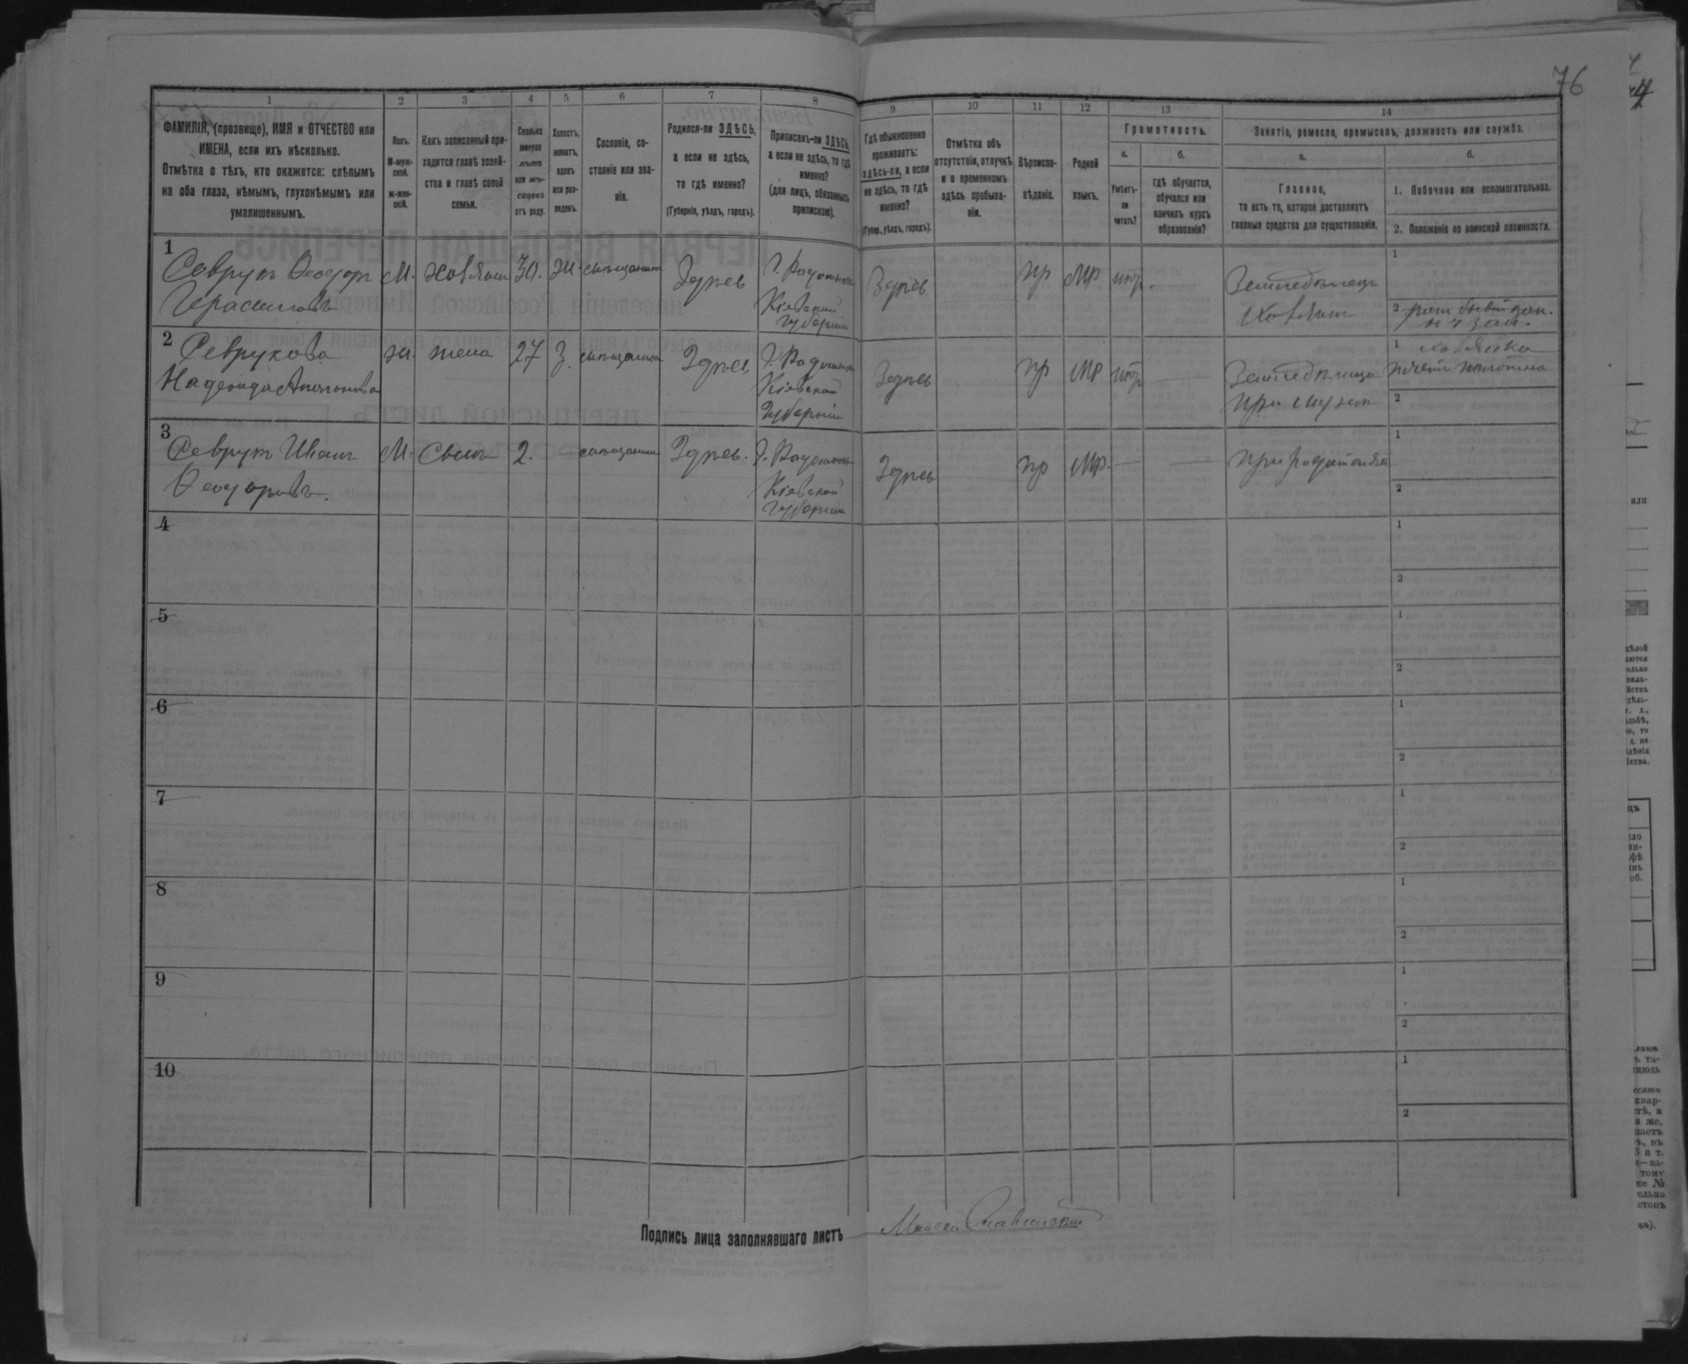 76
1
2
3
4
5
6
7
8
9
10
11
12
13
14
ФАМИЛІЯ, (прозвище), ИМЯ и ОТЧЕСТВО или
ИМЕНА, если ихъ нѣсколько.
Отмѣтка о тѣхъ, кто окажется: слѣпымъ
на оба глаза, нѣмымъ, глухонѣмымъ или
умалишеннымъ.
Полъ.
М-муж-
ской.
ж-жен-
скій.
Какъ записанный при-
ходится главѣ хозяй-
ства и главѣ своей
семьи.
Сколько
минуло
лѣтъ
или мѣ-
сяцевъ
отъ роду.
Холостъ,
женатъ,
вдовъ
или раз-
веденъ.
Сословіе, со-
стояніе или зва-
ніе.
Родился-ли ЗДѢСЬ,
а если не здѣсь,
то гдѣ именно?
(Губернія, уѣздъ, городъ).
Приписанъ-ли ЗДѢСЬ,
а если не здѣсь, то гдѣ
именно?
(для лицъ, обязанныхъ
припискою).
Гдѣ обыкновенно
проживаетъ:
здѣсь-ли, а если
не здѣсь, то гдѣ
именно?
(Губер., уѣздъ, городъ).
Отмѣтка объ
отсутствіи, отлучкѣ
и о временномъ
здѣсь пребыва-
ніи.
Вѣроиспо-
вѣданіе.
Родной
языкъ.
Грамотность.
а.
б.
Умѣетъ-
ли
читать?
гдѣ обучается,
обучался или
кончилъ курсъ
образованія?
Занятіе, ремесло, промыселъ, должность или служба.
а.
б.
Главное,
то есть то, которое доставляетъ
главныя средства для существованія.
1. Побочное или вспомогательное.
2. Положеніе по воинской повинности.
1
Севрукъ Ѳеодоръ
Герасимовъ
М.
хозяинъ
30.
ж.
Здѣсь
Г. Радомысль
Кіевской
Губерніи
Здѣсь
пр
Мр
Хозяинъ
1
2
2
Севрукова
Надежда
ж.
жена
27
З.
Здѣсь
Г. Радомысль
Кіевской
Губерніи
Здѣсь
пр
Мр
при мужѣ
1 хозяйка
2
3
Севрукъ Иванъ
Ѳеодоровъ.
М.
Сынъ
2.
Здѣсь.
Г. Радомысль
Кіевской
Губерніи
Здѣсь
пр
Мр.
при родителяхъ
1
2
4
1
2
5
1
2
6
1
2
7
1
2
8
1
2
9
1
2
10
1
2
Подпись лица заполнявшаго листъ